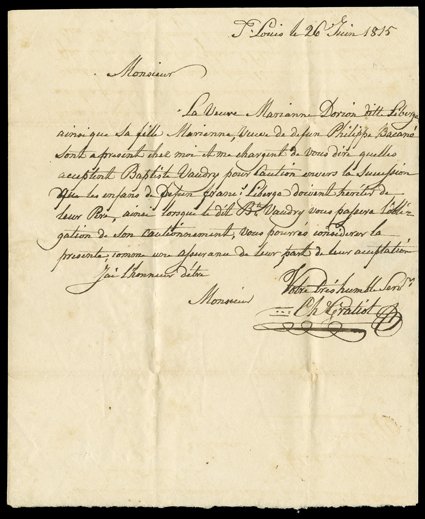 St. Louis le 26 Juin 1815
Monsieur
La Veuve Marianne Dorion ditte Liberge
ainsi que sa fille Marianne, veuve de defun Philippe Bacané
sont apresent chez moi et me chargent de vous dire quelles
acceptent Baptiste Vaudry pour Caution envers la Sucession
que les enfans de Defun franc.s Liberge doivent heriter de
leur Pere, ainsi lorsque le dit Bte. Vaudry vous passera l'obli-
gation de son Cautionnement, vous pourrés considerer la
presente, comme un assurance de leur part de leur acceptation
J'ai L'honneur d'être
Monsieur
Votre très humble Servr.
Ch Gratiot